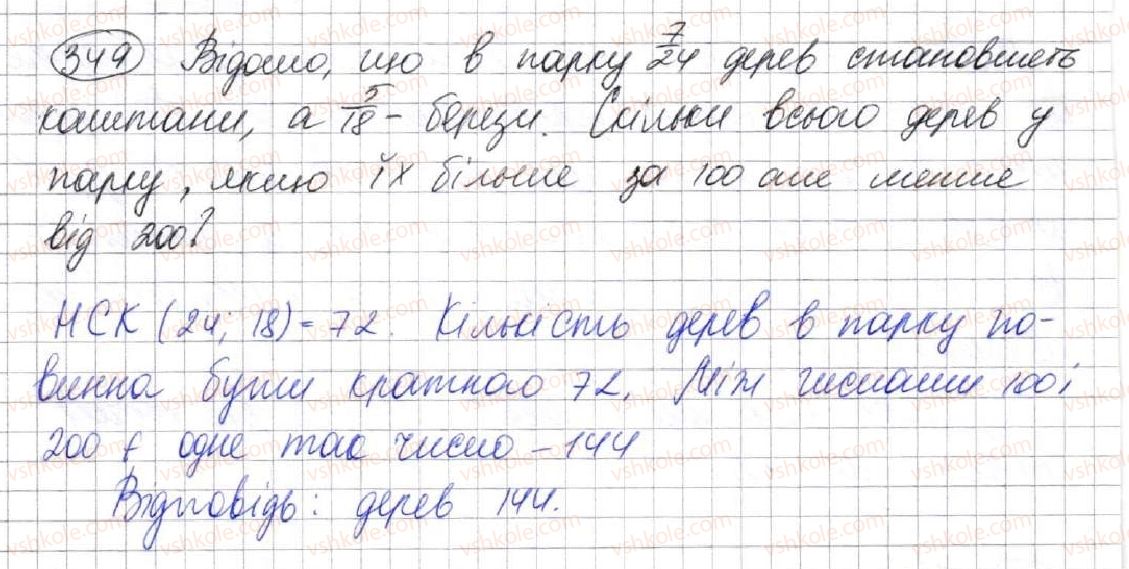 349 Відомо, що в парку 7/24 дерев становлять
каштани, а 5/18 - берези. Скільки всього дерев у
парку, якщо їх більше за 100 але менше
від 200?
НСК (24; 18) = 72. Кількість дерев в парку по-
винна бути кратною 72. Між числами 100 і
200 є одне таке число - 144
Відповідь: дерев 144.